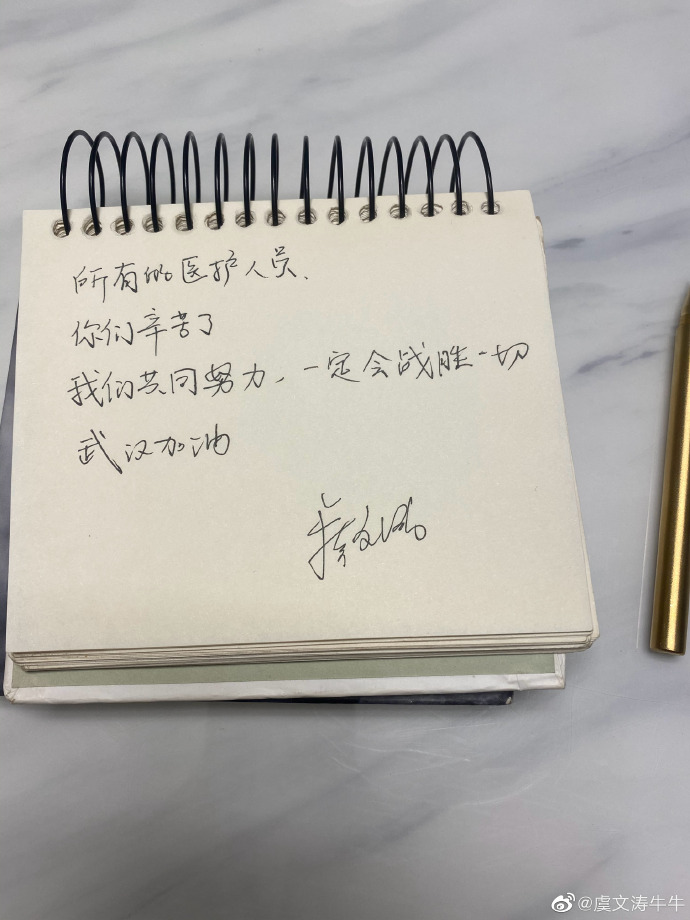 所有的医护人员、
你们辛苦了
我们共同努力、一定会战胜一切
武汉加油
@虞文涛牛牛